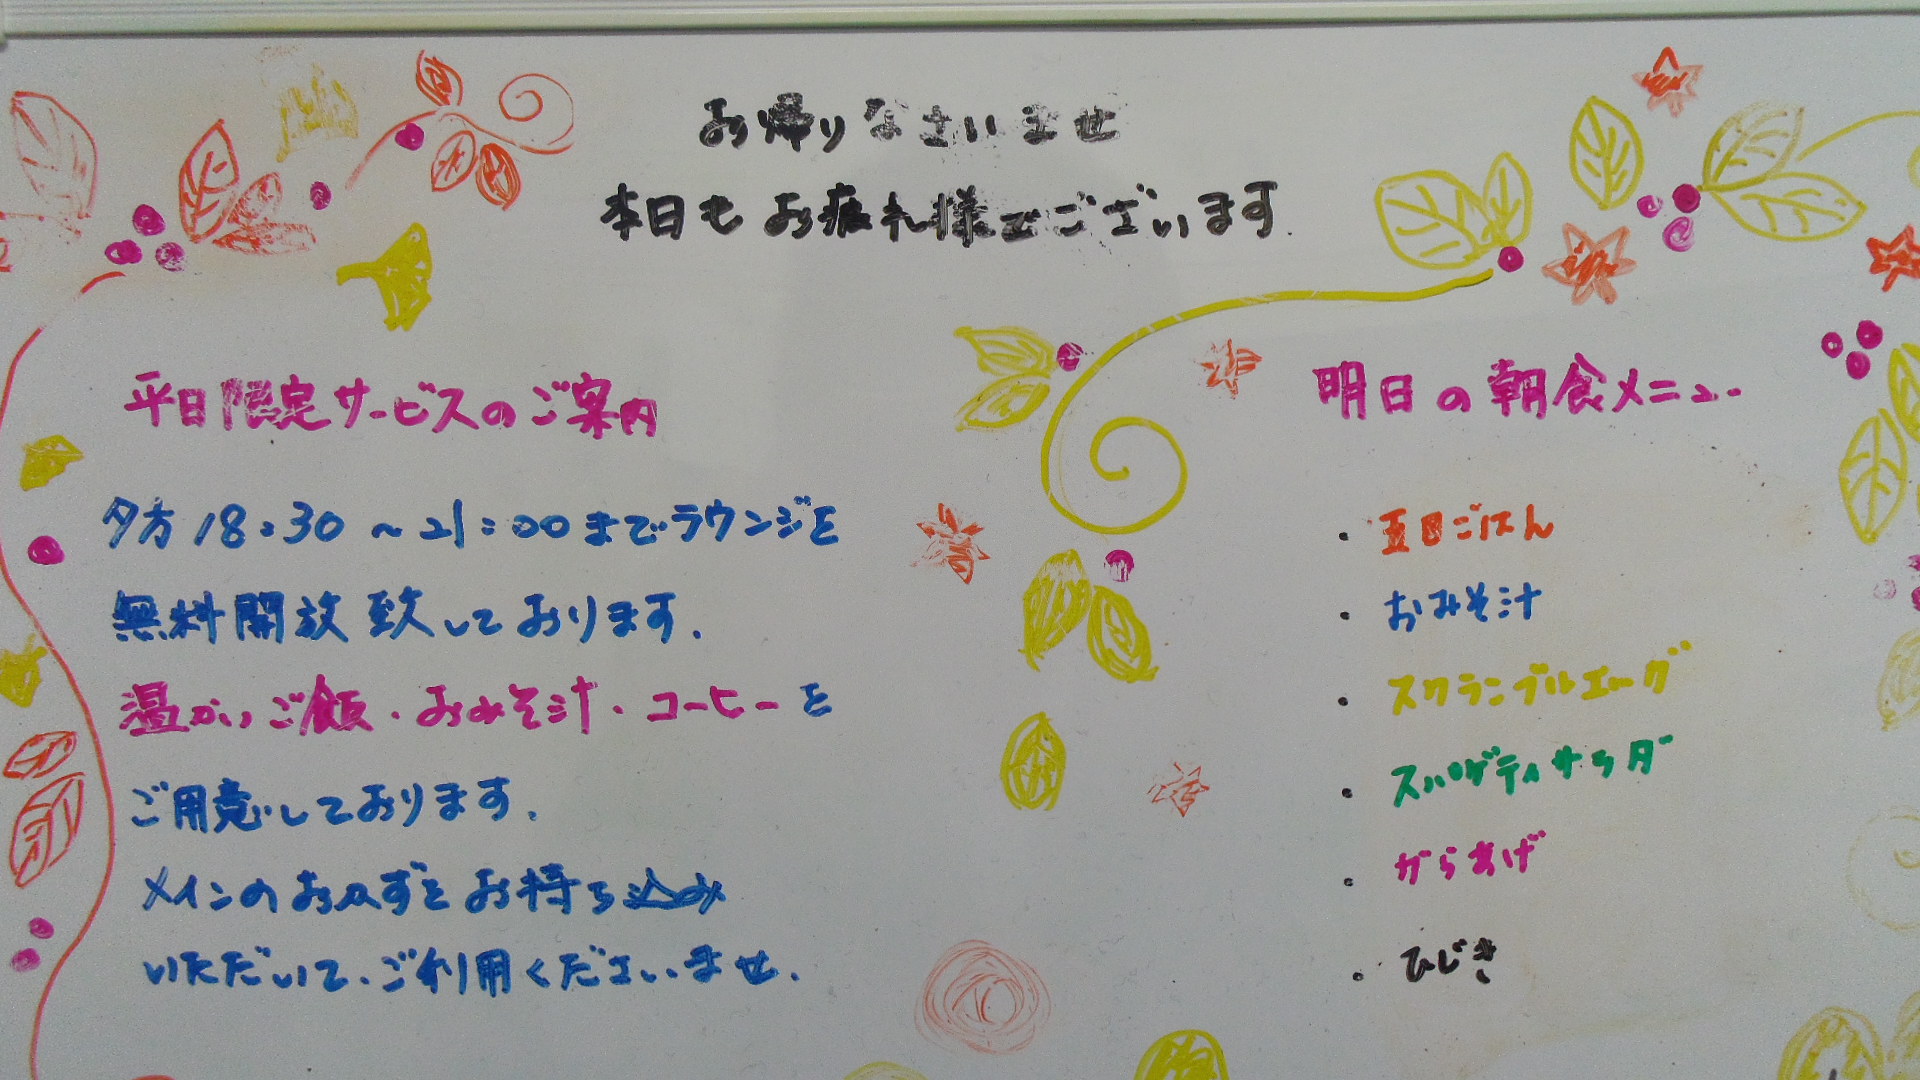 お帰りなさいませ
本日もお疲れ様でございます.
平日限定サービスのご案内
夕方18:30〜21:00までラウンジを
無料開放致しております.
温かいご飯・おみそ汁・コーヒーを
ご用意しております.
メインのおかずをお持ち込み
いただいて、ご利用くださいませ.
明日の朝食メニュー
・五目ごはん
・おみそ汁
・スクランブルエッグ
・スパゲティサラダ
・からあげ
・ひじき